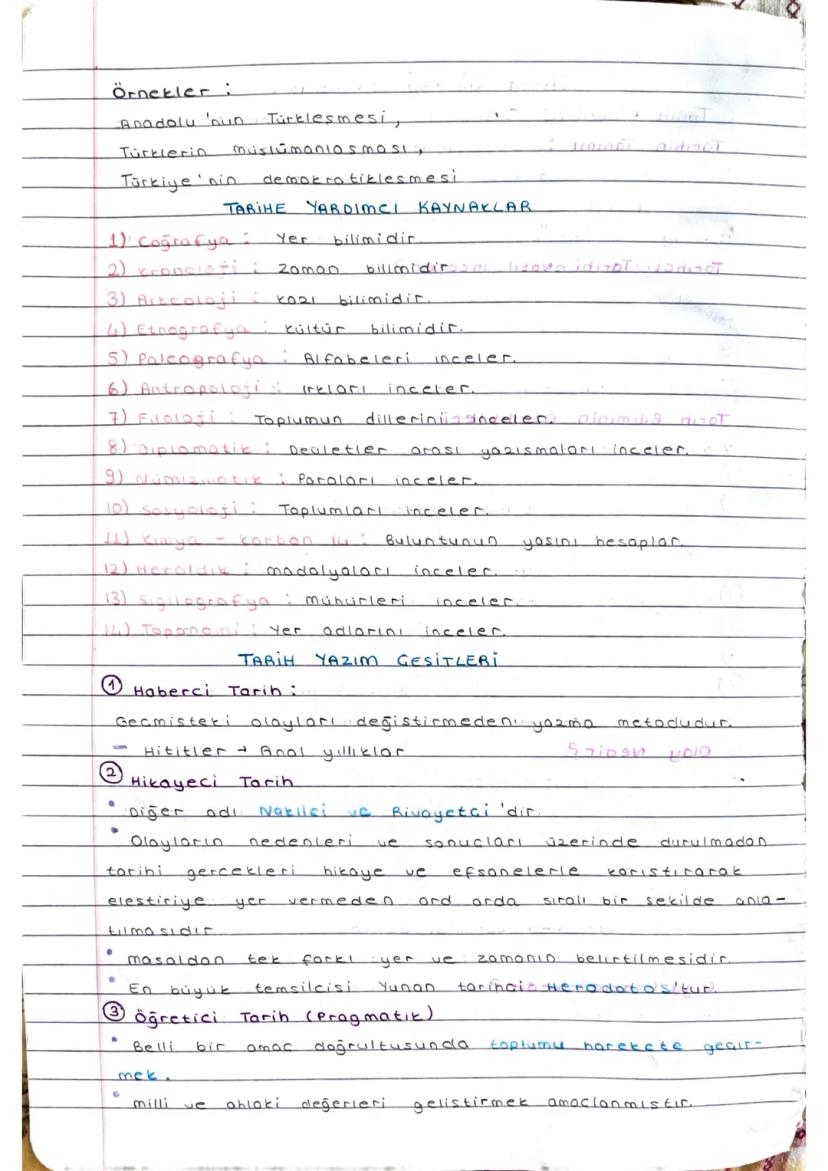 Örnekler :
Anadolu'nun Türkleşmesi,
Türklerin müslümanlaşması,
Türkiye'nin demokratikleşmesi
TARİHE YARDIMCI KAYNAKLAR
1) Coğrafya : Yer bilimidir.
2) Kronoloji : Zaman bilimidir
3) Arkeoloji : Kazı bilimidir.
4) Etnografya : Kültür bilimidir.
5) Paleografya : Alfabeleri inceler.
6) Antropoloji : Irkları inceler.
7) Filoloji : Toplumun dillerini inceler.
8) Diplomatik : Devletler arası yazışmaları inceler.
9) Nümizmatik : Paraları inceler.
10) Sosyoloji : Toplumları inceler.
11) Kimya - Karbon 14 : Buluntunun yaşını hesaplar.
12) Heraldik : madalyaları inceler.
13) Sigilografya : mühürleri inceler.
14) Toponomi : Yer adlarını inceler.
TARİH YAZIM ÇEŞİTLERİ
① Haberci Tarih :
Geçmişteki olayları değiştirmeden yazma metodudur.
- Hititler → Anal yıllıklar
② Hikayeci Tarih
• Diğer adı Nakilci ve Rivayetçi'dir.
• Olayların nedenleri ve sonuçları üzerinde durulmadan
tarihi gerçekleri hikaye ve efsanelerle karıştırarak
eleştiriye yer vermeden ard arda sıralı bir şekilde anla-
tılmasıdır
• masaldan tek farkı yer ve zamanın belirtilmesidir.
• En büyük temsilcisi Yunan tarihçi Herodotos'tur.
③ Öğretici Tarih (Pragmatik)
• Belli bir amaç doğrultusunda toplumu harekete geçir-
mek.
• milli ve ahlaki değerleri geliştirmek amaçlanmıştır.